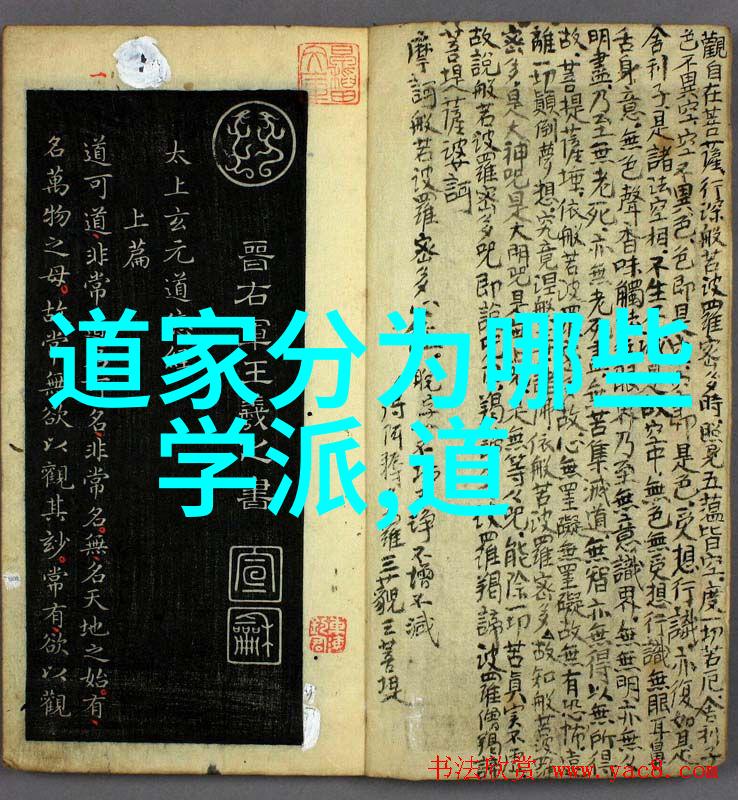 道家分为哪些
学派,道
觀自在菩薩,行深般若波羅密多時,照見五蘊皆空,度一切苦厄,舍利子
色不異空,空不異色,色即是空,空即是色,受想行識,亦復如是
舍利子是諸法空相,不生不是故空中無色無受想行識無眼耳鼻
舌身意,無色聲香味觸無眼界乃至無意識界,無無明亦無無
明盡,乃至無老死,亦無老死無苦集滅道,無智亦無得以無所得
故,菩提薩埵,依般若波羅故心無罣礙無罣礙故無有恐怖遠
離一切顛倒夢想究竟涅槃佛依般若波羅密多故知般若波羅
密多是大神咒是大明咒是無等々咒,能除一切苦真實不虛
故說般若波羅密多咒即說揭諦波羅揭諦波羅僧揭諦
菩提薩婆訶
摩訶般若波羅密多
淨不增不減
三藐三菩提
晉右軍王羲之書
宣
龢
太上玄元道
上篇
道可道,非常名,非常名。無名天地之始。有,
名萬物之母。故常無欲以觀其妙。常有欲以觀
书法欣赏 www.yac8.com